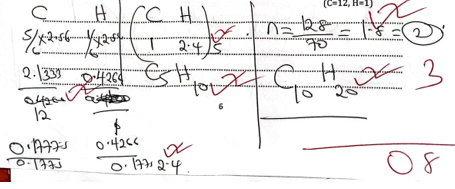 (C=12, H=1)
C H
5/6×2.56 1/6×2.56
2.1333 0.4266
12 1
0.1777s 0.4266
0.177s 0.177s 2.4
(C H)
(1 2.4)5
C5H10
6
n = 128/70 = 1.8 = 2
C10H20
3
08